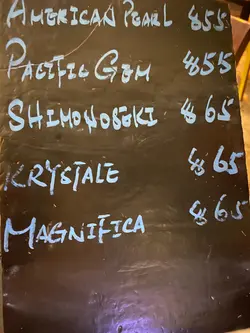 AMERICAN PEARL $55
PACIFIC GEM $55
SHIMONOSEKI $65
KRYSTALE $65
MAGNIFICA $65